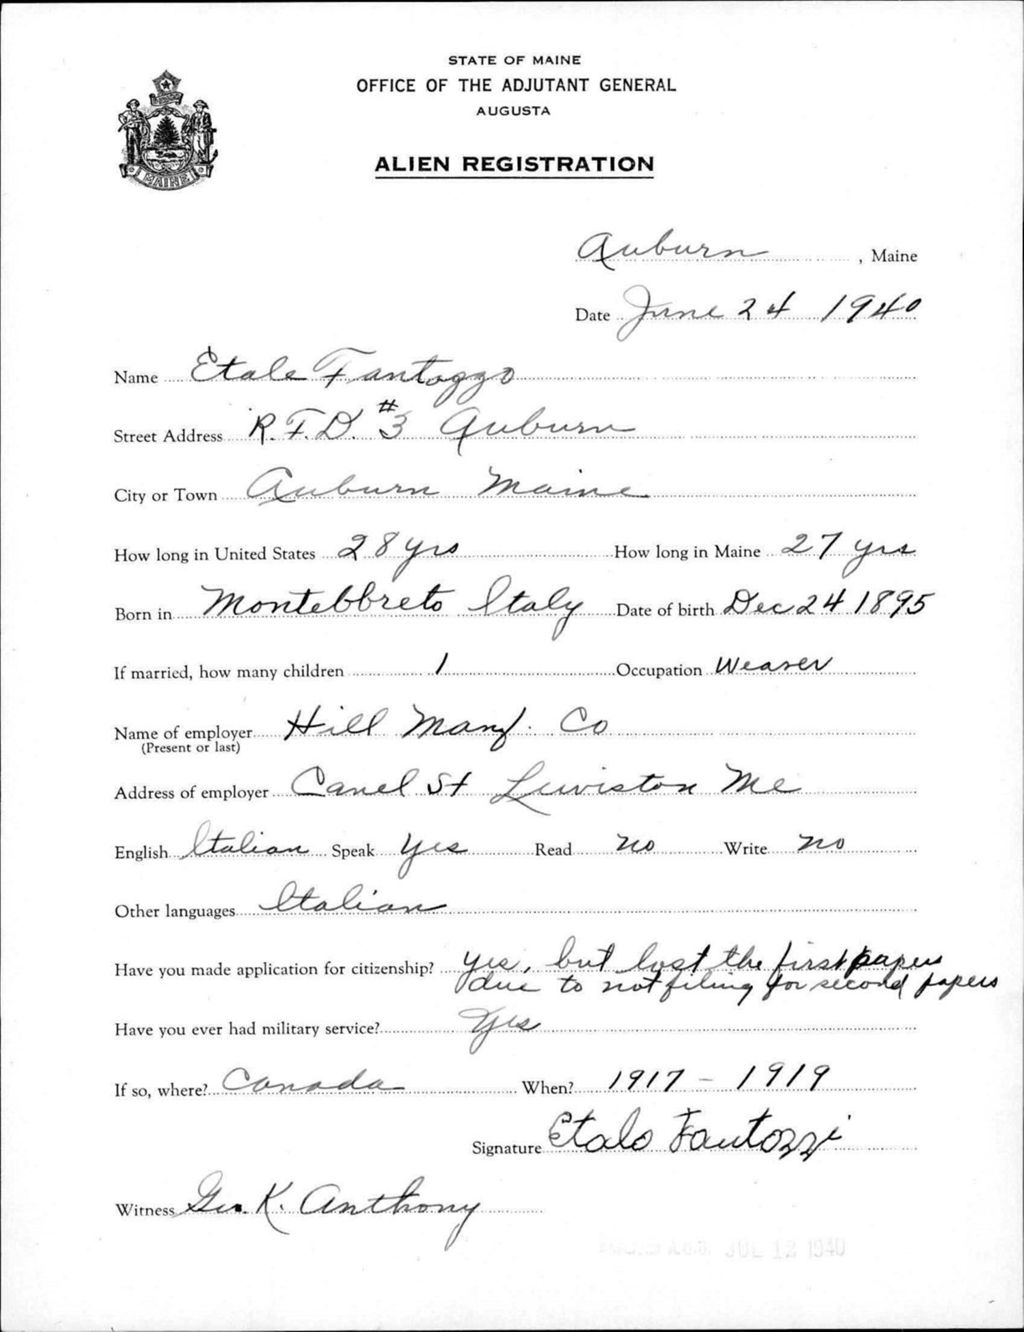 STATE OF MAINE
OFFICE OF THE ADJUTANT GENERAL
AUGUSTA
ALIEN REGISTRATION
MAINE
Auburn, Maine
Date June 24 1940
Name Etale Fantozzo
Street Address R.F.D. #3 Auburn
City or Town Auburn Maine
How long in United States 28 yrs How long in Maine 27 yrs
Born in Montebbreto Italy Date of birth Dec 24 1895
If married, how many children 1 Occupation Weaver
Name of employer Hill Manf. Co
(Present or last)
Address of employer Canel St Lewiston Me
English Italian Speak Yes Read no Write no
Other languages Italian
Have you made application for citizenship? yes, but lost the first papers
due to not filing for second papers
Have you ever had military service? Yes
If so, where? Canada When? 1917 - 1919
Signature Etalo Fantozzi
Witness Geo. K. Anthony
A.G.O. JUL 12 1940